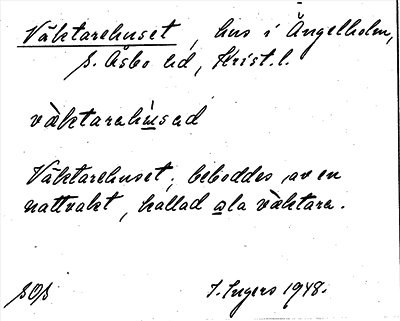 Väktarehuset, hus i Ängelholm,
S. Åsbo hd, Krist. l.
väktarehúsad
Väktarehuset, beboddes av en
nattvakt, kallad ola väktare.
SOS I. Ingers 1948.